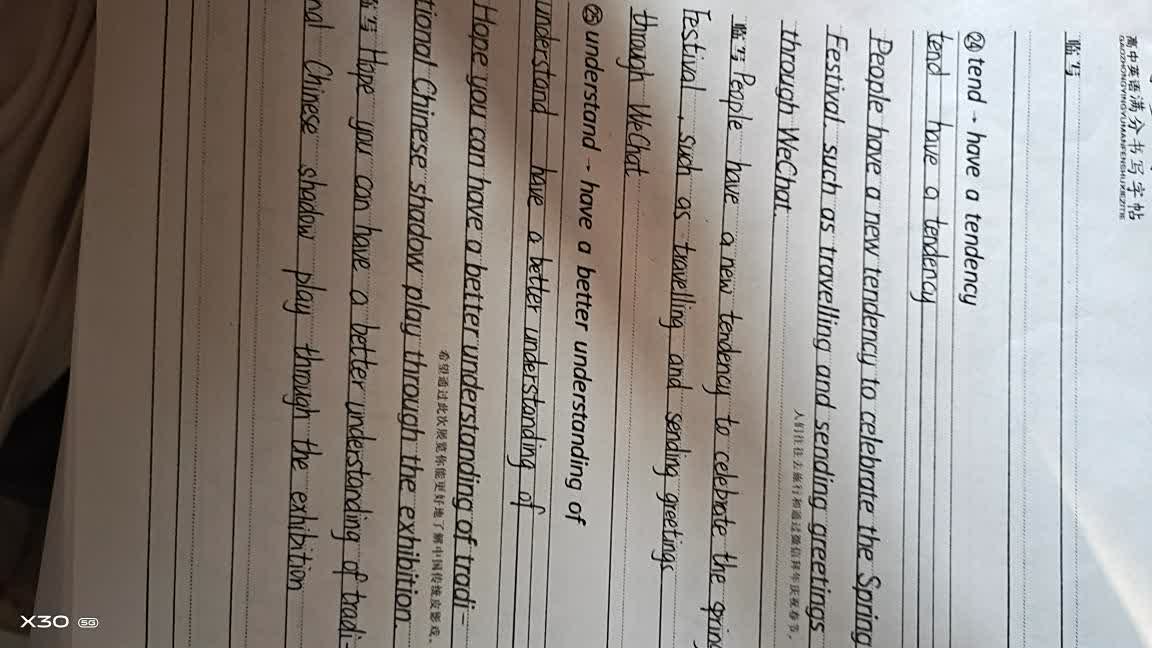 高中英语满分书写字帖
GAOZHONGYINGYUMANFENSHUXIEZITIE
临写
㉔ tend - have a tendency
tend have a tendency
People have a new tendency to celebrate the Spring
Festival, such as travelling and sending greetings
through WeChat.
人们往往去旅行和通过微信拜年庆祝春节。
临写 People have a new tendency to celebrate the
Festival, such as travelling and sending greetings
through WeChat
㉕ understand - have a better understanding of
understand have a better understanding of
Hope you can have a better understanding of tradi-
tional Chinese shadow play through the exhibition.
希望通过此次展览你能更好地了解中国传统皮影戏。
写 Hope you can have a better understanding of tradi-
nal Chinese shadow play through the exhibition
X30 5G